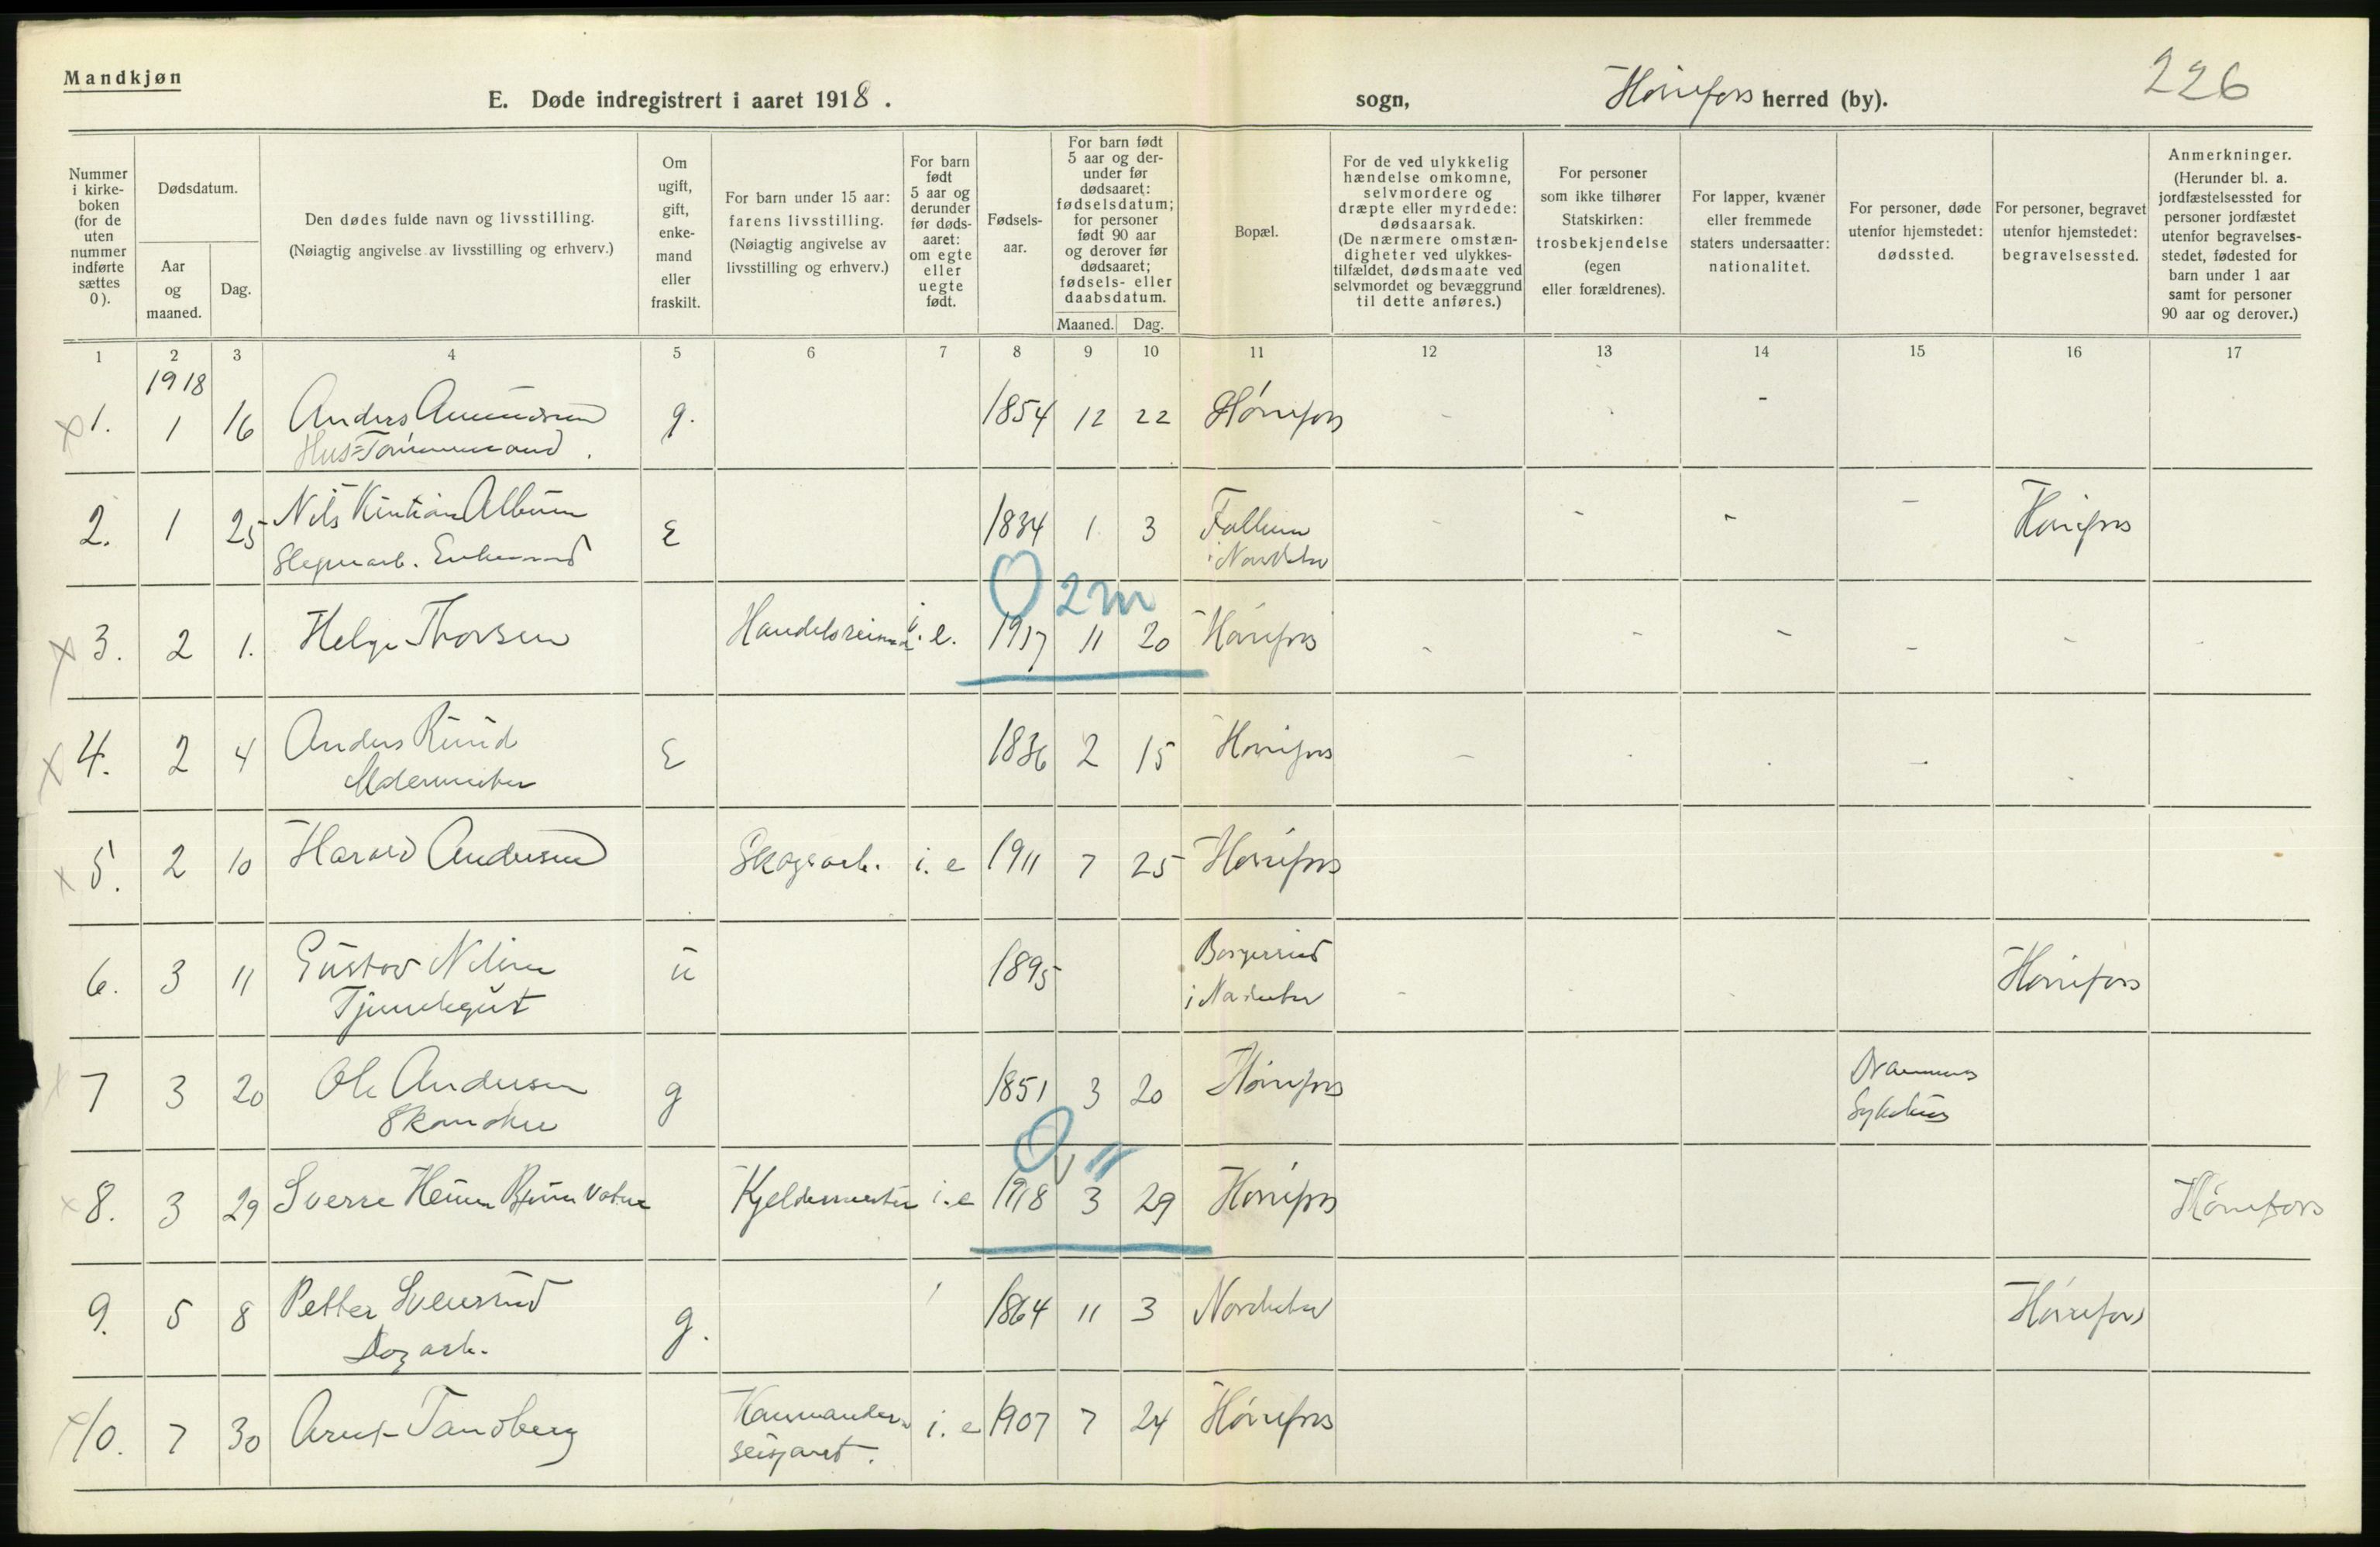 Mandkjøn
226
E. Døde indregistrert i aaret 1918. sogn, Hønefoss herred (by).
Nummer i kirke-boken (for de uten nummer indførte sættes 0).
Dødsdatum.
Aar og maaned.
Dag.
Den dødes fulde navn og livsstilling.
(Nøiagtig angivelse av livsstilling og erhverv.)
Om ugift, gift, enke-mand eller fraskilt.
For barn under 15 aar: farens livsstilling.
(Nøiagtig angivelse av livsstilling og erhverv.)
For barn født 5 aar og derunder før døds-aaret: om egte eller uegte født.
Fødsels-aar.
For barn født 5 aar og der-under før dødsaaret: fødselsdatum; for personer født 90 aar og derover før dødsaaret; fødsels- eller daabsdatum.
Maaned. Dag.
Bopæl.
For de ved ulykkelig hændelse omkomne, selvmordere og dræpte eller myrdede: dødsaarsak.
(De nærmere omstæn-digheter ved ulykkes-tilfældet, dødsmaate ved selvmordet og bevæggrund til dette anføres.)
For personer som ikke tilhører Statskirken: trosbekjendelse (egen eller forældrenes).
For lapper, kvæner eller fremmede staters undersaatter: nationalitet.
For personer, døde utenfor hjemstedet: dødssted.
For personer, begravet utenfor hjemstedet: begravelsessted.
Anmerkninger.
(Herunder bl. a. jordfæstelsessted for personer jordfæstet utenfor begravelses-stedet, fødested for barn under 1 aar samt for personer 90 aar og derover.)
1 2 3 4 5 6 7 8 9 10 11 12 13 14 15 16 17
1918
x 1. 1 16 Anders Amundsen g. 1854 12 22 Hønefoss - - -
Hus-Tømmermand.
2. 1 25 Nils E 1834 1 3 - - - - Hønefoss
Enkemand i Norderhov
O 2 m
x 3. 2 1. Helge Thorsen Handelsreisende i. e. 1917 11 20 Hønefoss - - - - - -
x 4. 2 4 Anders Ruud E 1836 2 15 Hønefoss - - - - -
Malermester
x 5. 2 10 Harald Andersen Skogsarb. i. e 1911 7 25 Hønefoss
6. 3 11 Gustav Nilsen u 1895 - Hønefoss
Tjenestegut i Norderhov
x 7 3 20 Ole Andersen g 1851 3 20 Hønefoss Drammens
Skomaker Sykehus
O
x 8. 3 29 Sverre i. e 1918 3 29 Hønefoss Hønefoss
9. 5 8 Petter Svensrud g. 1864 11 3 Norderhov Hønefoss
x 10. 7 30 Arne Tandberg i. e 1907 7 24 Hønefoss